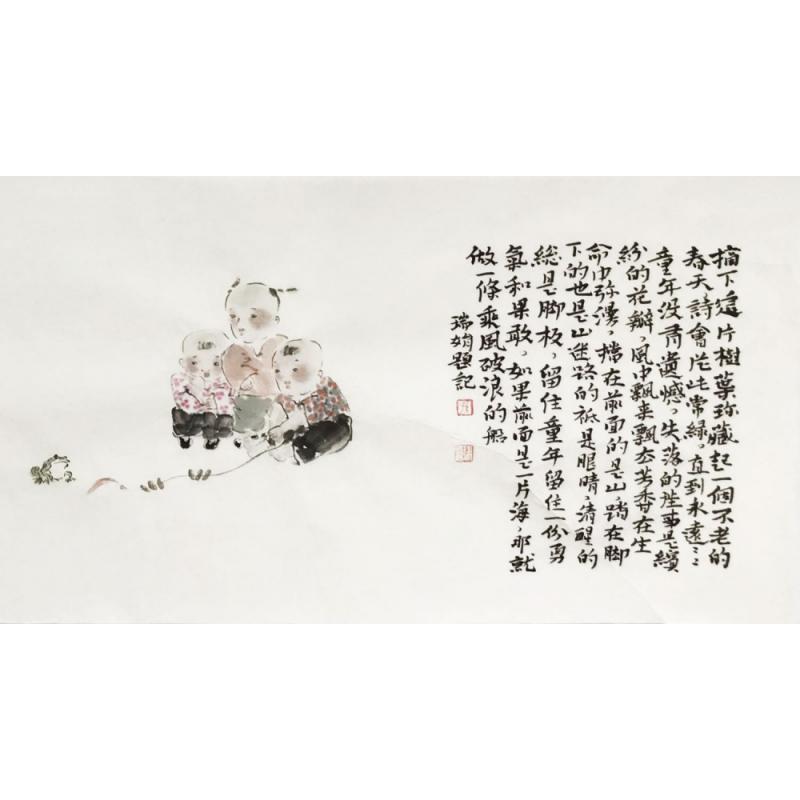 摘下這片樹葉珍藏起一個不老的
春天詩會從此常綠。直到永遠……
童年没有遺憾。失落的往事是繽
紛的花瓣,風中飄来飄去芳香在生
命中弥漫。擋在前面的是山,踏在脚
下的也是山迷路的祗是眼睛,清醒的
総是脚板,留住童年留住一份勇
氣和果敢。如果前面是一片海,那就
做一條乘風破浪的船
瑞娟題記